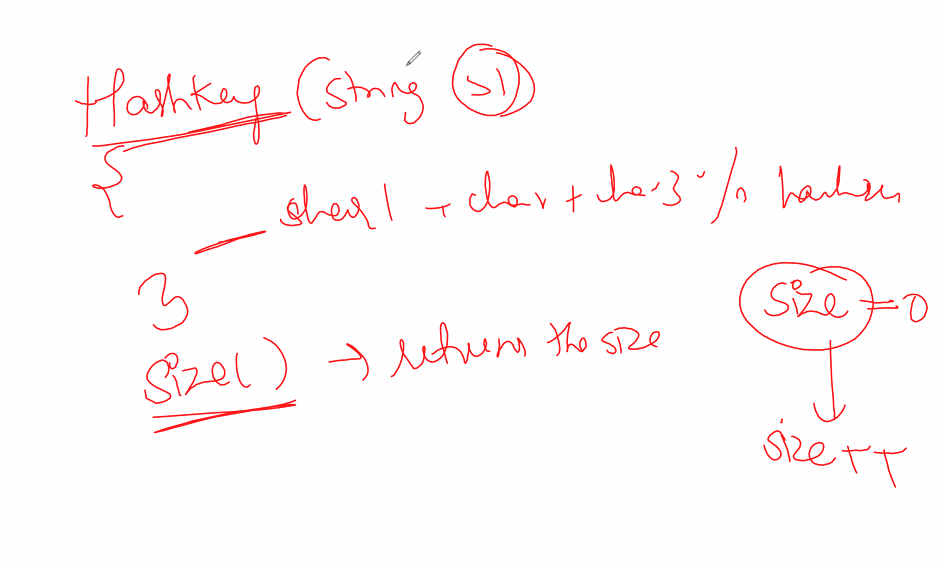 Hashkey (string s1)
{
char1 + char + char3 %
}
size() → returns the size
size = 0
size++